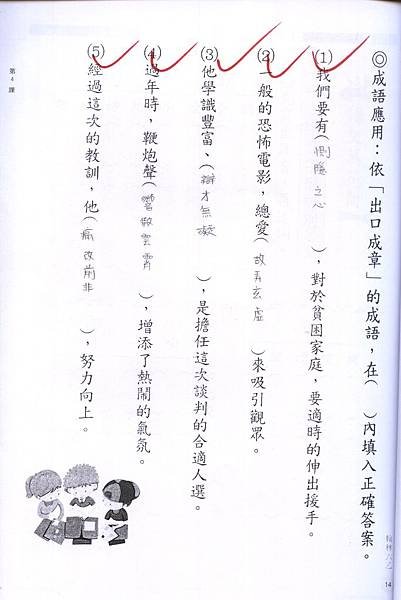 ◎成語應用：依「出口成章」的成語，在(　)內填入正確答案。
(1)我們要有(惻隱之心)，對於貧困家庭，要適時的伸出援手。
(2)一般的恐怖電影，總愛(故弄玄虛)來吸引觀眾。
(3)他學識豐富、(辯才無礙)，是擔任這次談判的合適人選。
(4)過年時，鞭炮聲(響徹雲霄)，增添了熱鬧的氣氛。
(5)經過這次的教訓，他(痛改前非)，努力向上。
第4課
翰林六乙
14